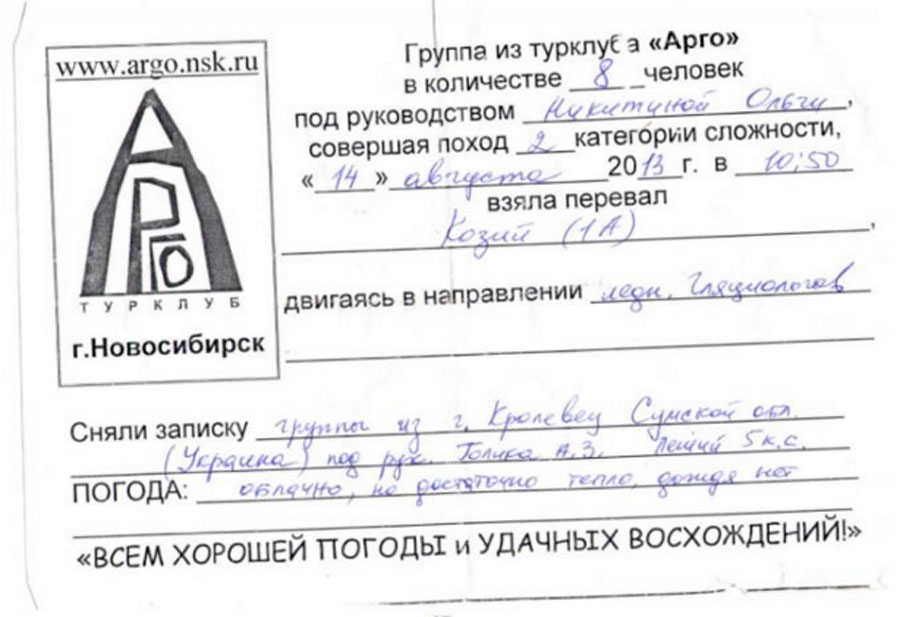 www.argo.nsk.ru
АРГО
ТУРКЛУБ
г.Новосибирск
Группа из турклуба «Арго»
в количестве 8 человек
под руководством Никитиной Ольги,
совершая поход 2 категории сложности,
«14» августа 2013 г. в 10:50
взяла перевал
Козий (1А),
двигаясь в направлении ледн. Гляциологов
Сняли записку группы из г. Кролевец Сумской обл.
(Украина) под рук. Голика А.З. Пеший 5 к.с.
ПОГОДА: облачно, но достаточно тепло, дождя нет
«ВСЕМ ХОРОШЕЙ ПОГОДЫ и УДАЧНЫХ ВОСХОЖДЕНИЙ!»